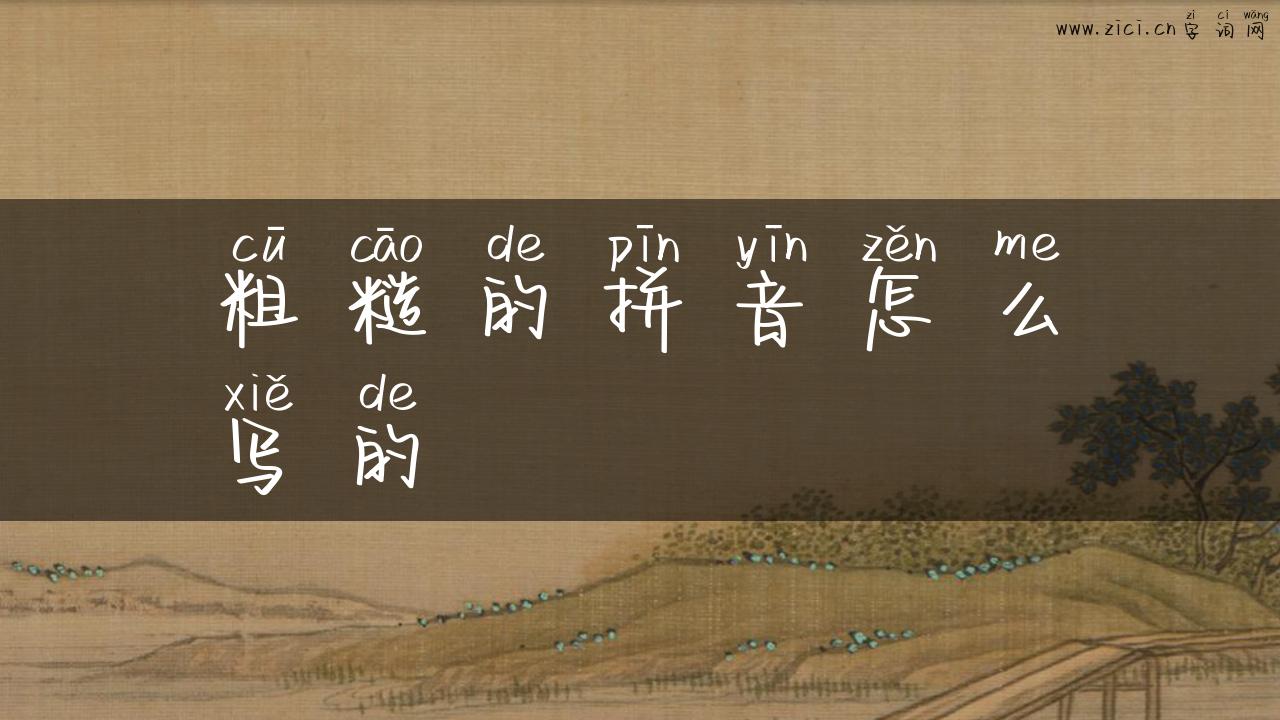 zì cí wǎng
www.zici.cn字词网
cū cāo de pīn yīn zěn me
粗糙的拼音怎么
xiě de
写的